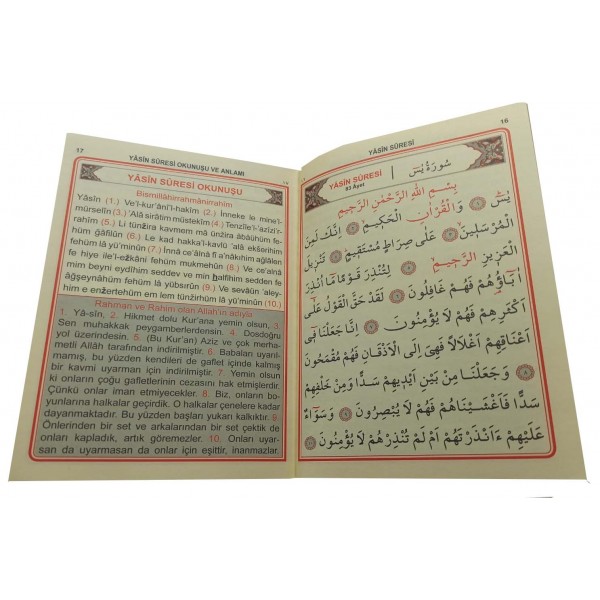 17
YÂSİN SÛRESİ OKUNUŞU VE ANLAMI
YÂSİN SÛRESİ OKUNUŞU
Bismillâhirrahmânirrahîm
Yâsîn (1.) Ve'l-kur'âni'l-hakîm (2.) İnneke le mine'l-
mürselîn (3.) 'Alâ sirâtim müstekîm (4.) Tenzîle'l-'azîzi'r-
rahîm (5.) Li tünzira kavmem mâ ünzira âbâühüm fe-
hüm ğâfilûn (6.) Le kad hakka'l-kavlü 'alâ ekserihim
fehüm lâ yü'minûn (7.) İnnâ ce'alnâ fî a'nâkıhim ağlâlen
fe hiye ile'l-ezkâni fehüm mukmehûn (8.) Ve ce'alnâ
mim beyni eydîhim seddev ve min halfihim sedden fe
ağşeynâhüm fehüm lâ yübsırûn (9.) Ve sevâün 'aley-
him e enzertehüm em lem tünzirhüm lâ yü'minûn (10.)
Rahman ve Rahim olan Allah'ın adıyla
1. Yâ-sîn, 2. Hikmet dolu Kur'ana yemin olsun, 3.
Sen muhakkak peygamberlerdensin. 4. Dosdoğru
yol üzerindesin. 5. (Bu Kur'an) Aziz ve çok merha-
metli Allâh tarafından indirilmiştir. 6. Babaları uyarıl-
mamış, bu yüzden kendileri de gaflet içinde kalmış
bir kavmi uyarman için indirilmiştir. 7. Yemin olsun
ki onların çoğu gafletlerinin cezasını hak etmişlerdir.
Çünkü onlar iman etmiyecekler. 8. Biz, onların bo-
yunlarına halkalar geçirdik. O halkalar çenelere kadar
dayanmaktadır. Bu yüzden başları yukarı kalkıktır. 9.
Önlerinden bir set ve arkalarından bir set çektik de
onları kapladık, artık göremezler. 10. Onları uyar-
san da uyarmasan da onlar için eşittir, inanmazlar.
16
YÂSİN SÛRESİ
YÂSİN SÛRESİ
83 Âyet
سُورَةُ يٰسٓ
بِسْمِ اللّٰهِ الرَّحْمٰنِ الرَّحِيمِ
يٰسٓ ﴿١﴾ وَالْقُرْاٰنِ الْحَكِيمِ ﴿٢﴾ اِنَّكَ لَمِنَ
الْمُرْسَلِينَ ﴿٣﴾ عَلٰى صِرَاطٍ مُسْتَقِيمٍ ﴿٤﴾ تَنْزِيلَ
الْعَزِيزِ الرَّحِيمِ ﴿٥﴾ لِتُنْذِرَ قَوْمًا مَٓا اُنْذِرَ
اٰبَٓاؤُهُمْ فَهُمْ غَافِلُونَ ﴿٦﴾ لَقَدْ حَقَّ الْقَوْلُ عَلٰٓى
اَكْثَرِهِمْ فَهُمْ لَا يُؤْمِنُونَ ﴿٧﴾ اِنَّا جَعَلْنَا فِٓى
اَعْنَاقِهِمْ اَغْلَالًا فَهِىَ اِلَى الْاَذْقَانِ فَهُمْ مُقْمَحُونَ
﴿٨﴾ وَجَعَلْنَا مِنْ بَيْنِ اَيْدِيهِمْ سَدًّا وَمِنْ خَلْفِهِمْ
سَدًّا فَاَغْشَيْنَاهُمْ فَهُمْ لَا يُبْصِرُونَ ﴿٩﴾ وَسَوَٓاءٌ
عَلَيْهِمْ ءَاَنْذَرْتَهُمْ اَمْ لَمْ تُنْذِرْهُمْ لَا يُؤْمِنُونَ ﴿١٠﴾